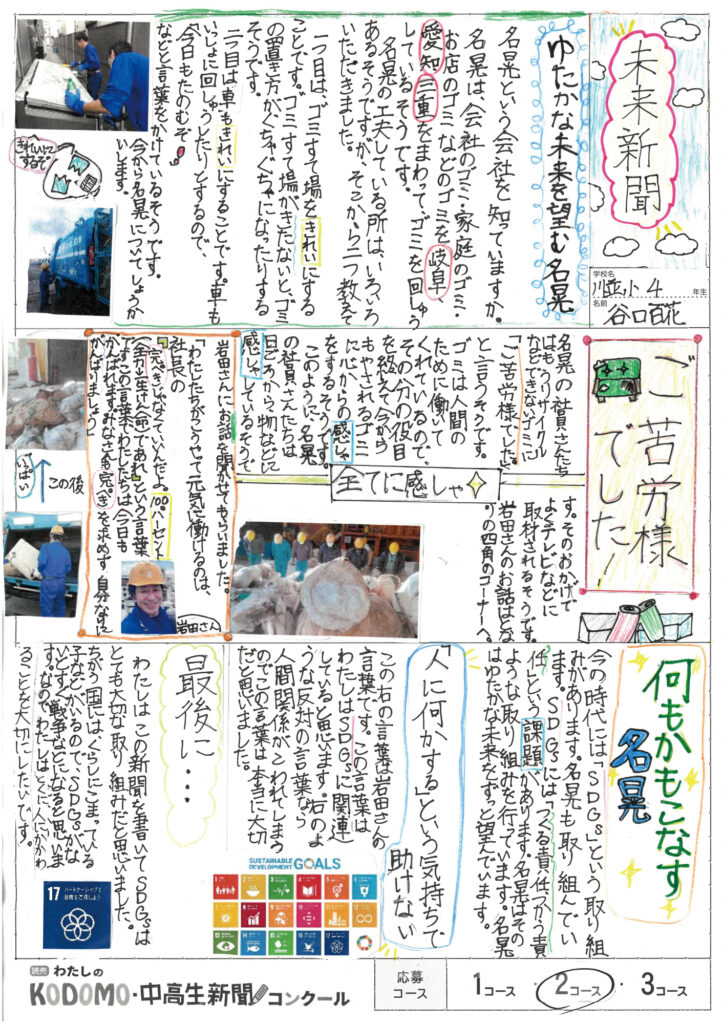 未来新聞
学校名
川並小
4
年生
名前
谷口百花
ゆたかな未来を望む名晃
名晃という会社を知っていますか。
名晃は、会社のゴミ・家庭のゴミ・
お店のゴミなどのゴミを、岐阜、
愛知、三重をまわって、ゴミを回しゅう
しているそうです。
名晃の工夫している所は、いろいろ
あるそうですが、そこから二つ教えて
いただきました。
一つ目は、ゴミすて場をきれいにする
ことです。ゴミすて場がきたないと、ゴミ
の置き方がぐちゃぐちゃになったりする
そうです。
二つ目は車もきれいにすることです。車も
いっしょに回しゅうしたりとするので、
「今日もたのむぞ」
などと言葉をかけているそうです。
今から名晃についてしょうか
いします。
きれいにするぞ
ご苦労様でした！
名晃の社員さんたち
はもうリサイクル
などできないゴミに
「ご苦労様でした」
と言うそうです。
ゴミは人間の
ために働いて
くれているので、
その分の役目
を終えて今から
もやされるゴミ
に心からの感しゃ
をするそうです。
このように、名晃
の社員さんたちは
日ごろから、物などに
感しゃしているそうで
す。そのおかげで
よくテレビなどに
取材されるそうです。
岩田さんのお話はとな
りの四角のコーナーへ。
全てに感しゃ
岩田さんにお話を聞かせてもらいました。
「わたしたちがこうやって元気に働けるのは、
社長の
『完ぺきじゃなくていいんだよ。100パーセント
全力で生けん命であれ』という言葉
です。この言葉でわたしたちは今日も
がんばれます。みなさんも完ぺきを求めず自分なりに
がんばりましょう」
岩田さん
この後
いっぱい
何もかもこなす
名晃
今の時代には「SDGs」という取り組
みがあります。名晃も取り組んでい
ます。SDGsには「つくる責任つかう責
任」という課題があります。名晃はその
ような取り組みを行っています。名晃
はゆたかな未来をずっと望んでいます。
「人に何かする」という気持ちで
助けない
この右の言葉は岩田さんの
言葉です。この言葉は
わたしはSDGsに関連
していると思います。右のよ
うな反対の言葉なら
人間関係がこわれてしまう
のでこの言葉は本当に大切
だと思いました。
最後に・・・
わたしはこの新聞を書いてSDGsは
とても大切な取り組みだと思いました。
ちがう国にはくらしにこまっている
子などがいるので、SDGsがな
いとすぐ戦争などになると思いま
す。なのでわたしはとくに人にかかわ
ることを大切にしたいです。
SUSTAINABLE
DEVELOPMENT GOALS
17 パートナーシップで
目標を達成しよう
読売 わたしの
KODOMO・中高生新聞コンクール
応募
コース
1コース・2コース・3コース